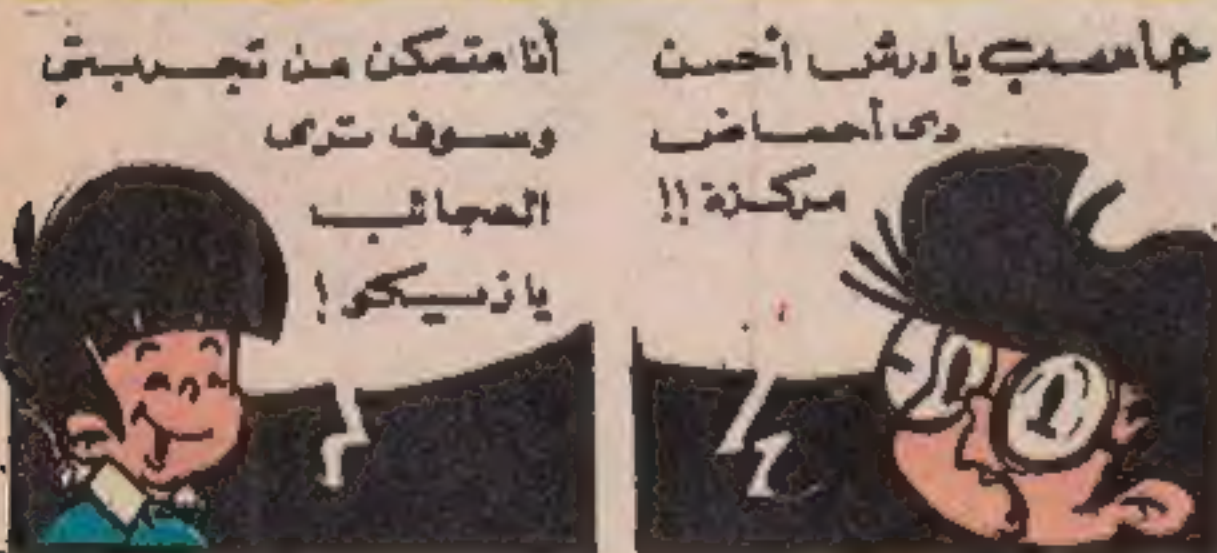 حاسب يا درش أحسن
دى أحماض
مركزة !!
أنا متمكن من تجربتي
وسوف ترى
العجائب
يا زيكو !